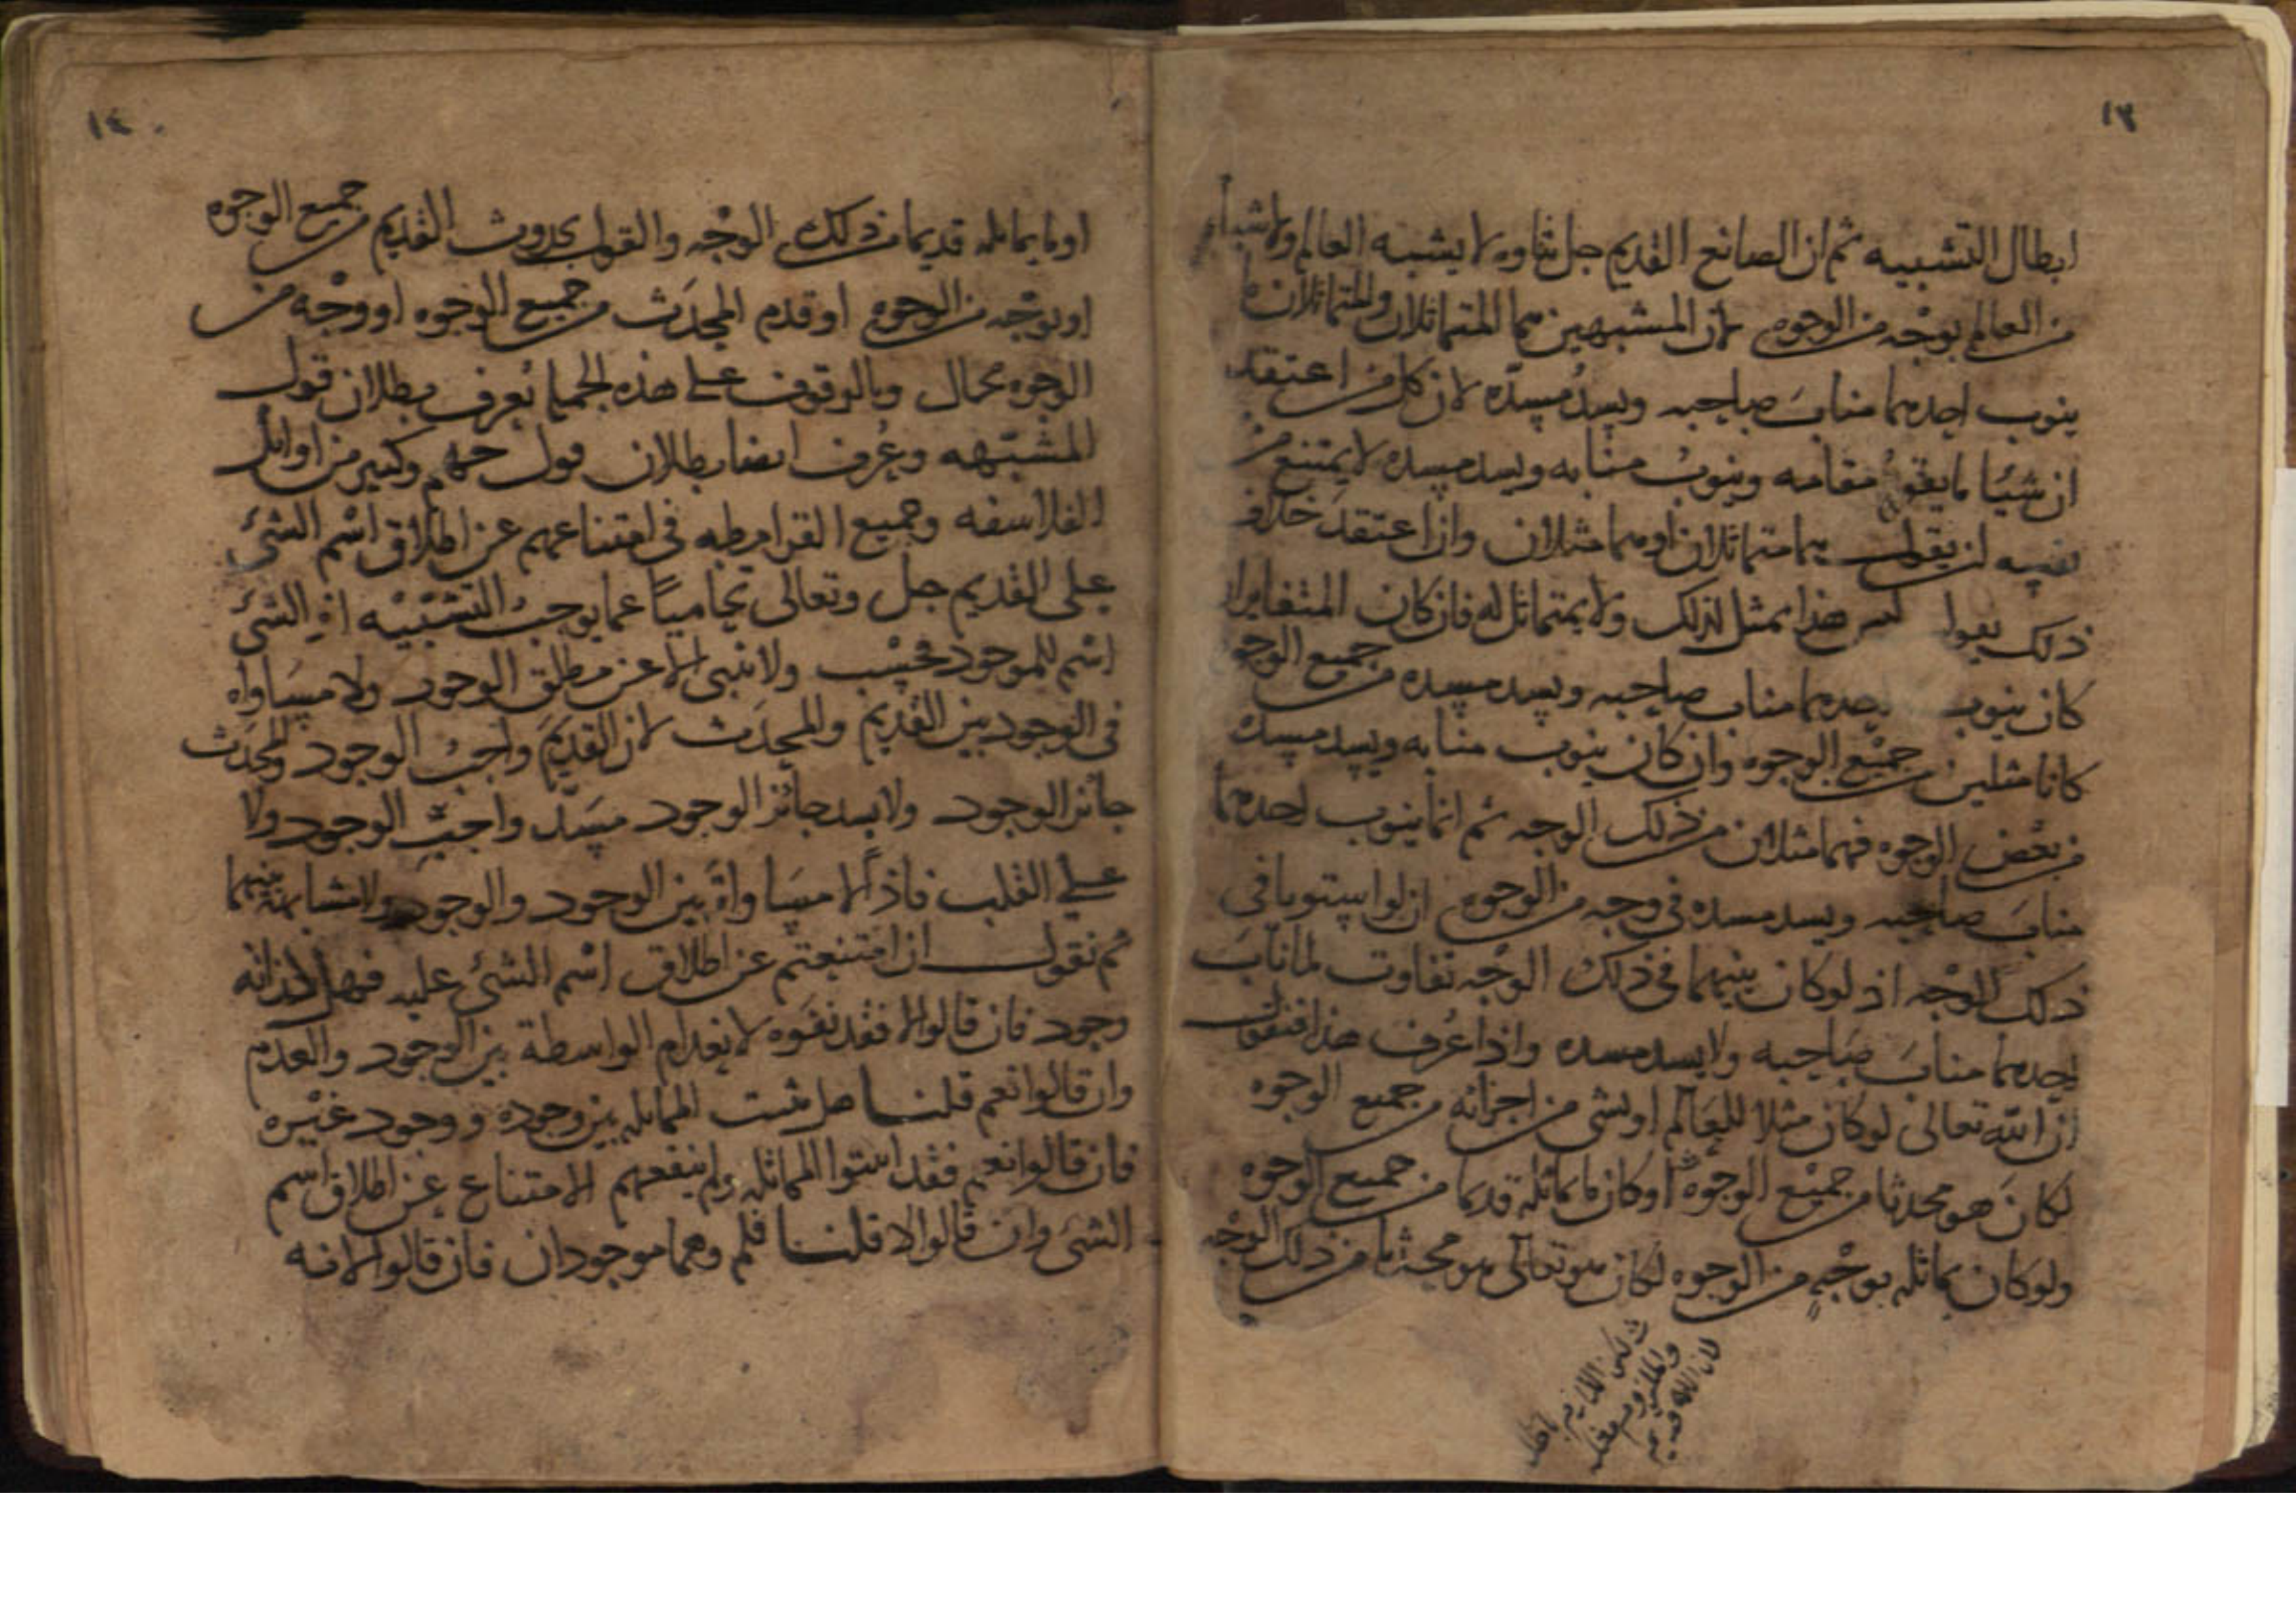 ١٣
ابطال التشبيه ثم ان الصانع القديم جل ثناوه لا يشبه العالم ولا شيأ
من العالم بوجه من الوجوه لان المشبهين هما المتماثلان والمتماثلان ما
ينوب احدهما مناب صاحبه ويسد مسده لان كل من اعتقد
ان شيئا ما يقوم مقامه وينوب منابه ويسد مسده لا يمتنع من
نفسه ان يقول هما متماثلان او هما مثلان وان اعتقد خلاف
ذلك يقول ليس هذا بمثل لذلك ولا بمتماثل له فان كان المتغايران
كان ينوب احدهما مناب صاحبه ويسد مسده من جميع الوجوه
كانا مثلين من جميع الوجوه وان كان ينوب منابه ويسد مسده
من بعض الوجوه فهما مثلان من ذلك الوجه ثم انما ينوب احدهما
مناب صاحبه ويسد مسده في وجه من الوجوه ان لو استويا في
ذلك الوجه اذ لو كان بينهما في ذلك الوجه تفاوت لما ناب
احدهما مناب صاحبه ولا يسد مسده واذا عرف هذا فنقول
ان الله تعالى لو كان مثلا للعالم او لشي من اجزائه من جميع الوجوه
لكان هو محدثا من جميع الوجوه او كان ما يماثله قديما من جميع الوجوه
ولو كان يماثله بوجه من الوجوه لكان هو تعالى هو محدثا من ذلك الوجه
لكن اللازم باطل
والملزوم مثله
١٤
او ما يماثله قديما من ذلك الوجه والقول بحدوث القديم من جميع الوجوه
او بوجه من الوجوه او قدم المحدث من جميع الوجوه او وجه من
الوجوه محال وبالوقوف على هذه الجملة يعرف بطلان قول
المشبهه وعرف ايضا بطلان قول جهم وكثير من اوائل
الفلاسفه وجميع القرامطه في امتناعهم عن اطلاق اسم الشئ
على القديم جل وتعالى تحاميا عما يوجب التشبيه اذ الشئ
اسم للموجود فحسب ولا ينبى الا عن مطلق الوجود ولا مساواة
في الوجود بين القديم والمحدث لان القديم واجب الوجود والمحدث
جائز الوجود ولا يسد جائز الوجود مسد واجب الوجود ولا
على القلب فاذًا لا مساواة بين الوجود والوجود ولا مشابهة بينهما
ثم نقول ان امتنعتم عن اطلاق اسم الشئ عليه فهل لذاته
وجود فان قالوا لا فقد نفوه لانعدام الواسطة بين الوجود والعدم
وان قالوا نعم قلنا هل تثبت المماثله بين وجوده ووجود غيره
فان قالوا نعم فقد اثبتوا المماثله ولم ينفعهم الامتناع عن اطلاق اسم
الشئ وان قالوا لا قلنا فلم وهما موجودان فان قالوا لانه